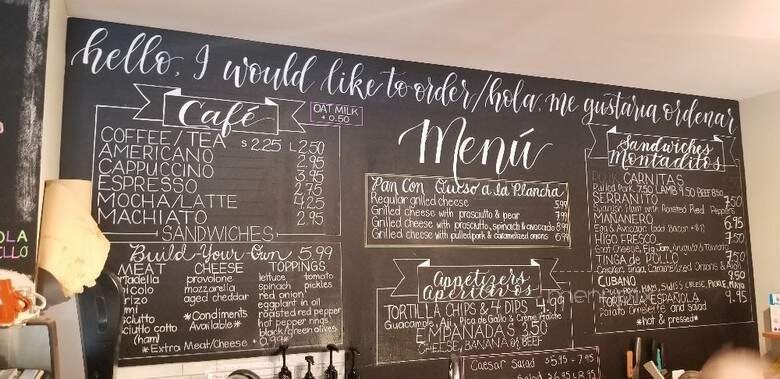 hello, I would like to order/hola. me gustaria ordenar
Café
OAT MILK
+ 0.50
COFFEE/TEA $2.25 L2.50
AMERICANO 2.95
CAPPUCCINO 3.95
ESPRESSO 2.75
MOCHA/LATTE 4.25
MACHIATO 2.95
SANDWICHES
Build-Your-Own 5.99
MEAT CHEESE TOPPINGS
tadella provolone lettuce tomato
icolo mozzarella spinach pickles
rizo aged cheddar red onion
mi eggplant in oil
sciutto *Condiments roasted red pepper
sciutto cotto Available* hot pepper rings
(ham) black/green olives
*Extra Meat/Cheese + 0.99*
Menú
Pan Con Queso a la Plancha
Regular grilled cheese 5.99
Grilled cheese with prosciutto & pear 7.99
Grilled cheese with prosciutto, spinach & avocado 8.99
Grilled cheese with pulled pork & caramelized onions 6.99
Appetizers
Aperitivos
TORTILLA CHIPS & 4 DIPS
Guacamole, Pico de Gallo & Crème Fraîche
EMPANADAS 3.50
CHEESE, BANANA or BEEF
Caesar Salad $5.95 - 7.95
Salad
Sandwiches
Montaditos
CARNITAS
Pulled Pork 7.50 LAMB 9.50
SERRANITO 7.50
Ham with Roasted Red Peppers
MAÑANERO 6.95
Egg & Avocado (add Bacon +$1)
HIGO FRESCO 7.50
TINGA de POLLO 7.50
CUBANO 9.50
HAM, SWISS CHEESE, PICKLE, MAYO
TORTILLA ESPAÑOLA 9.95
Potato Omelette and salad
*hot & pressed*
OLA
ELLO